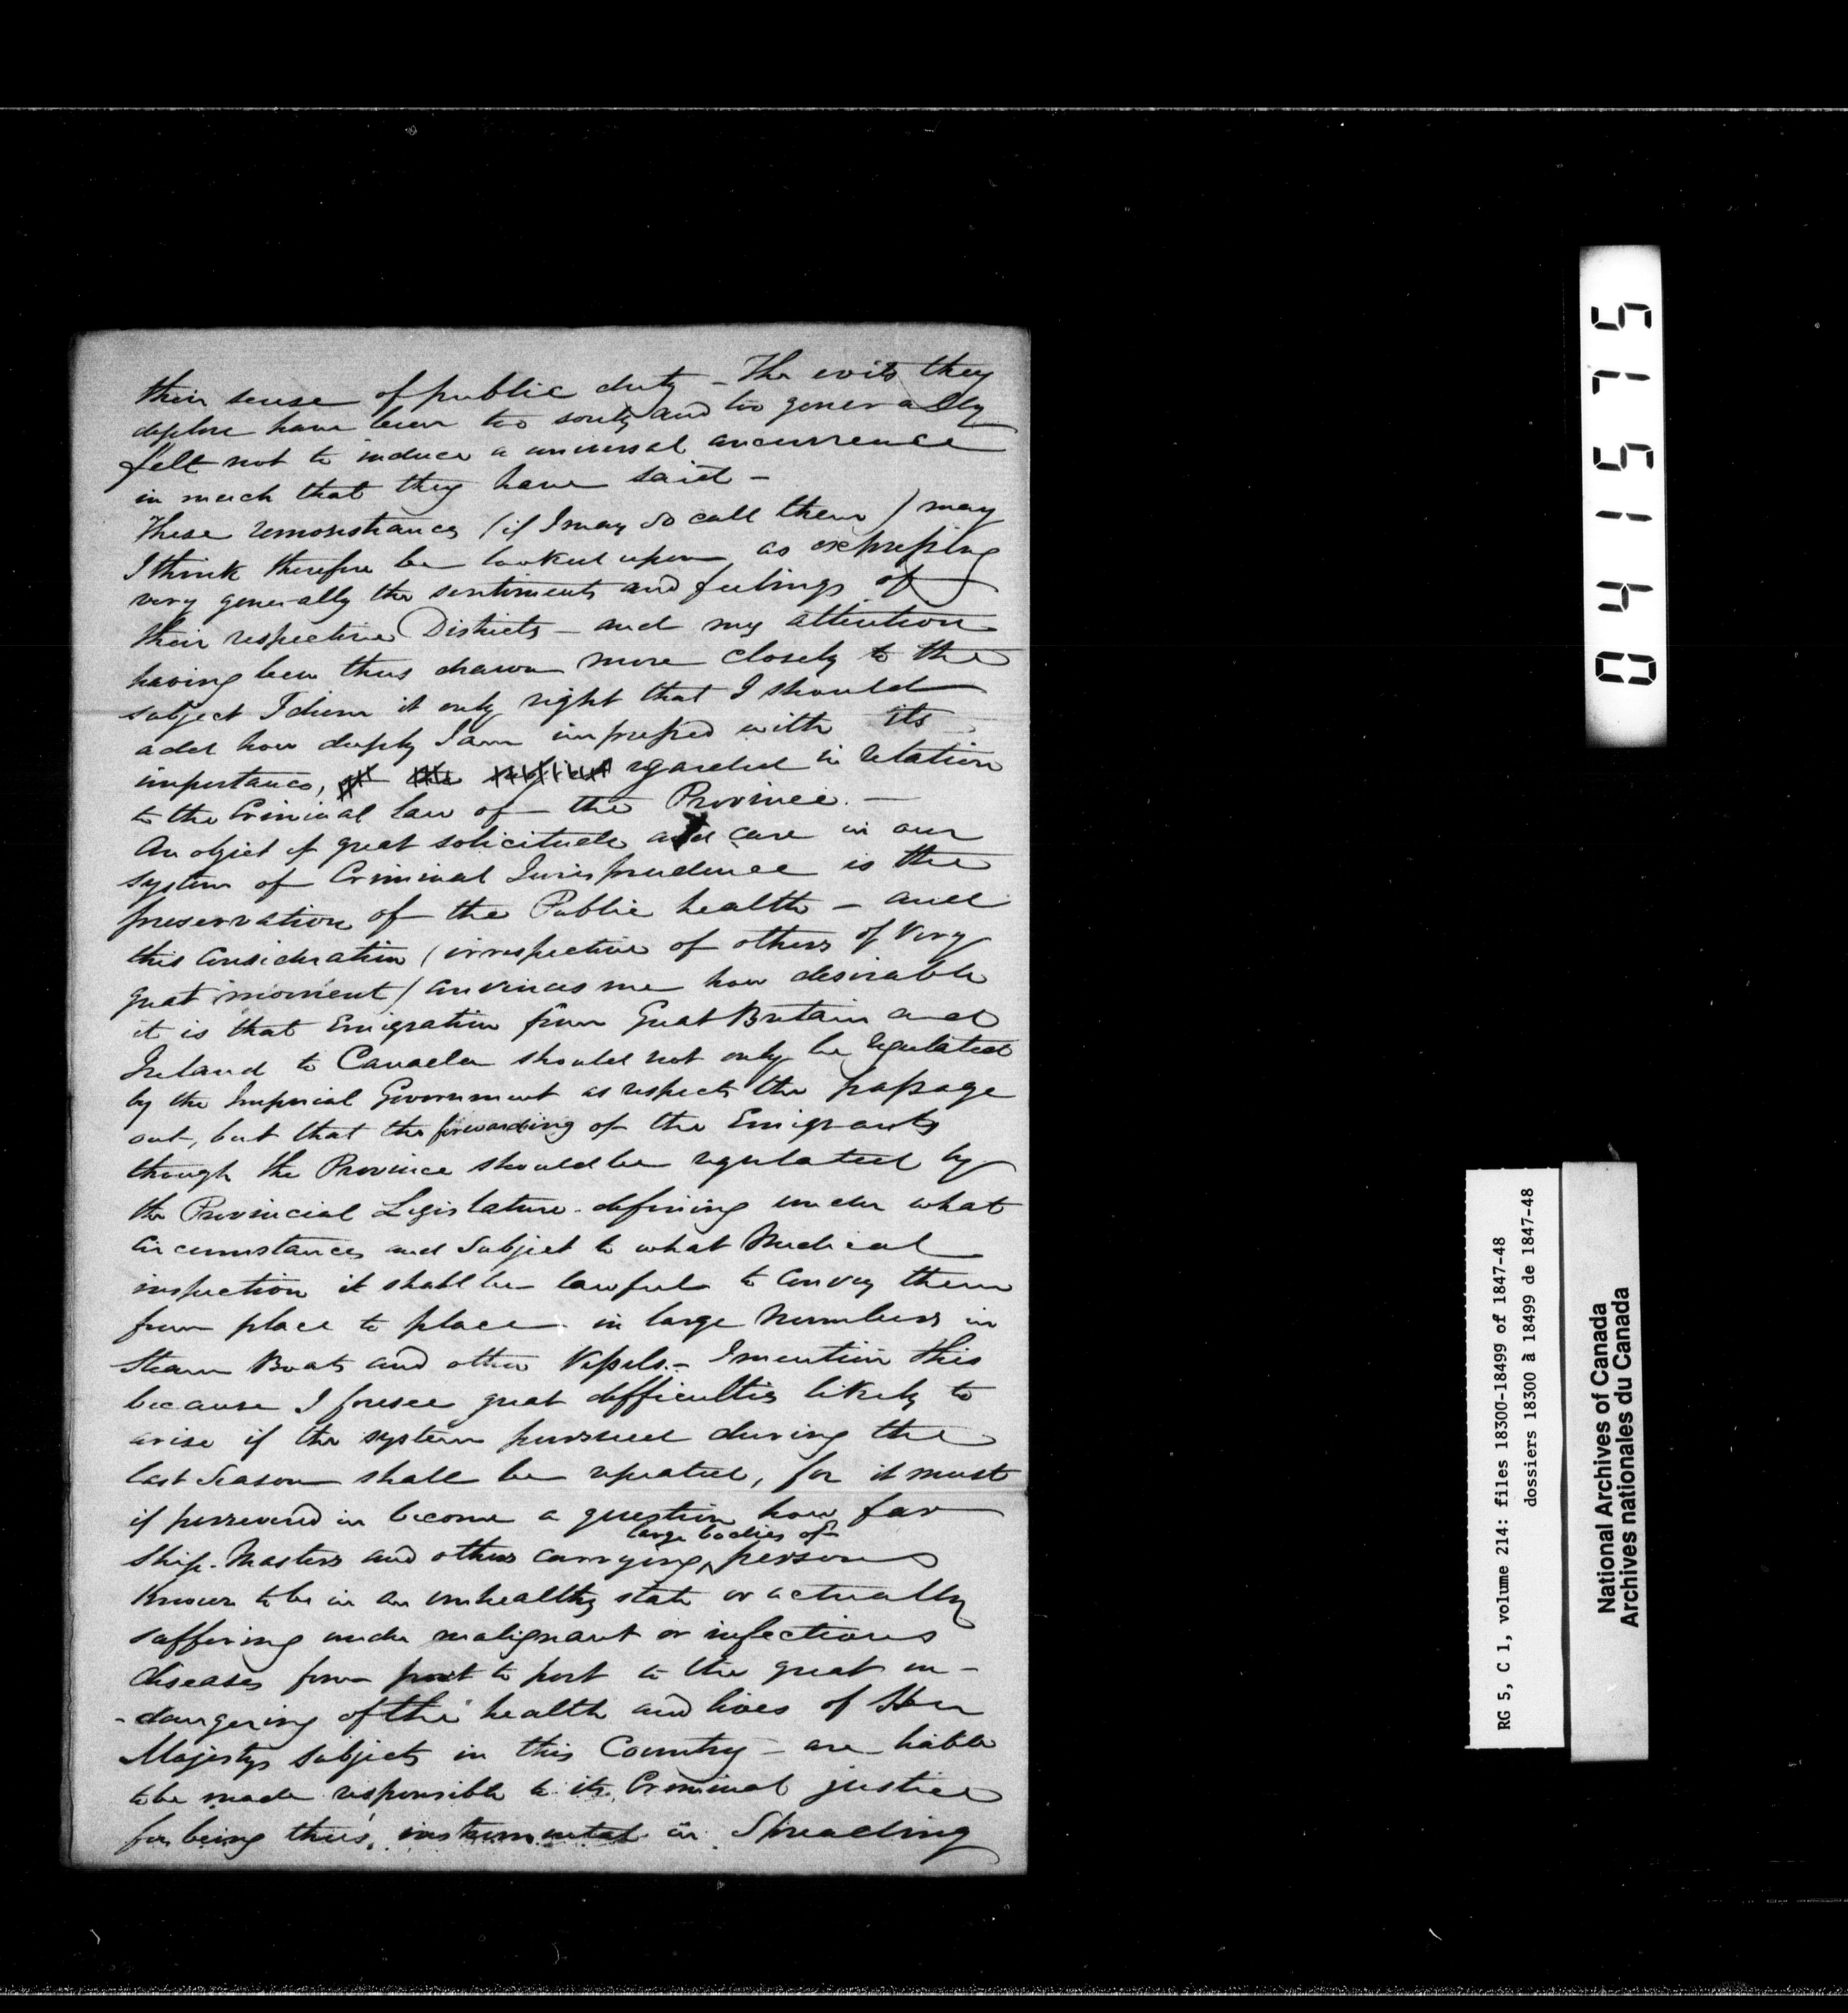 their sense of public duty – The evils they
deplore have been too sorely and too generally
felt not to induce a universal concurrence
in much that they have said –
These remonstrances (if I may so call them) may
I think therefore be looked upon as expressing
very generally the sentiments and feelings of
their respective Districts – and my attention
having been thus drawn more closely to the
subject I deem it only right that I should
add how deeply I am impressed with its
importance, regarded in relation
to the Criminal law of the Province. –
An object of great solicitude and care in our
system of Criminal Jurisprudence is the
preservation of the Public health – and
this Consideration (irrespective of others of very
great moment) convinces me how desirable
it is that Emigration from Great Britain and
Ireland to Canada should not only be regulated
by the Imperial Government as respects the passage
out, but that the forwarding of the Emigrants
through the Province should be regulated by
the Provincial Legislature - defining under what
Circumstances and Subject to what Medical
inspection it shall be lawful to Convey them
from place to place in large Numbers in
Steam Boats and other Vessels. – I mention this
because I foresee great difficulties likely to
arise if the system pursued during the
last Season shall be repeated, for it must
if persevered in become a question how far
large bodies of
Ship-Masters and others carrying persons
known to be in an unhealthy state or actually
suffering under malignant or infectious
diseases from port to port to the great en-
-dangering of the health and lives of Her
Majestys subjects in this Country – are liable
to be made responsible to its Criminal justice
for being thus instrumental in Spreading
0415175
RG 5, C 1, volume 214: files 18300-18499 of 1847-48
dossiers 18300 à 18499 de 1847-48
National Archives of Canada
Archives nationales du Canada